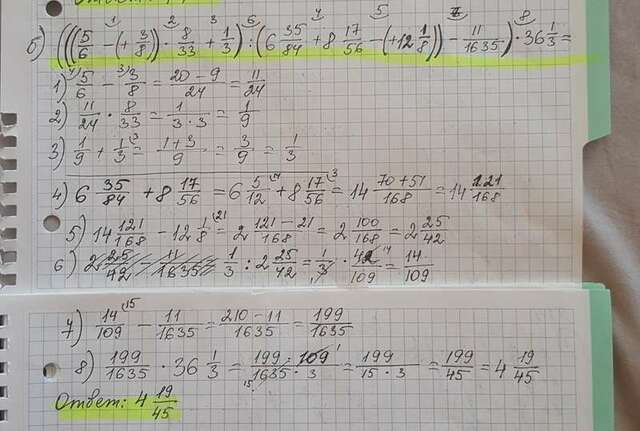 Ответ:
б) (((5/6 - (+3/8)) · 8/33 + 1/3) : (6 35/84 + 8 17/56 - (+12 1/8)) - 11/1635) · 36 1/3 =
1) 5/6 - 3/8 = (20 - 9)/24 = 11/24
2) 11/24 · 8/33 = 1/(3 · 3) = 1/9
3) 1/9 + 1/3 = (1+3)/9 = 3/9 = 1/3
4) 6 35/84 + 8 17/56 = 6 5/12 + 8 17/56 = 14 (70+51)/168 = 14 121/168
5) 14 121/168 - 12 1/8 = 2 (121 - 21)/168 = 2 100/168 = 2 25/42
6) 2 25/42 - 11/1635 1/3 : 2 25/42 = 1/3 · 42/109 = 14/109
7) 14/109 - 11/1635 = (210 - 11)/1635 = 199/1635
8) 199/1635 · 36 1/3 = (199 · 109)/(1635 · 3) = 199/(15 · 3) = 199/45 = 4 19/45
Ответ: 4 19/45